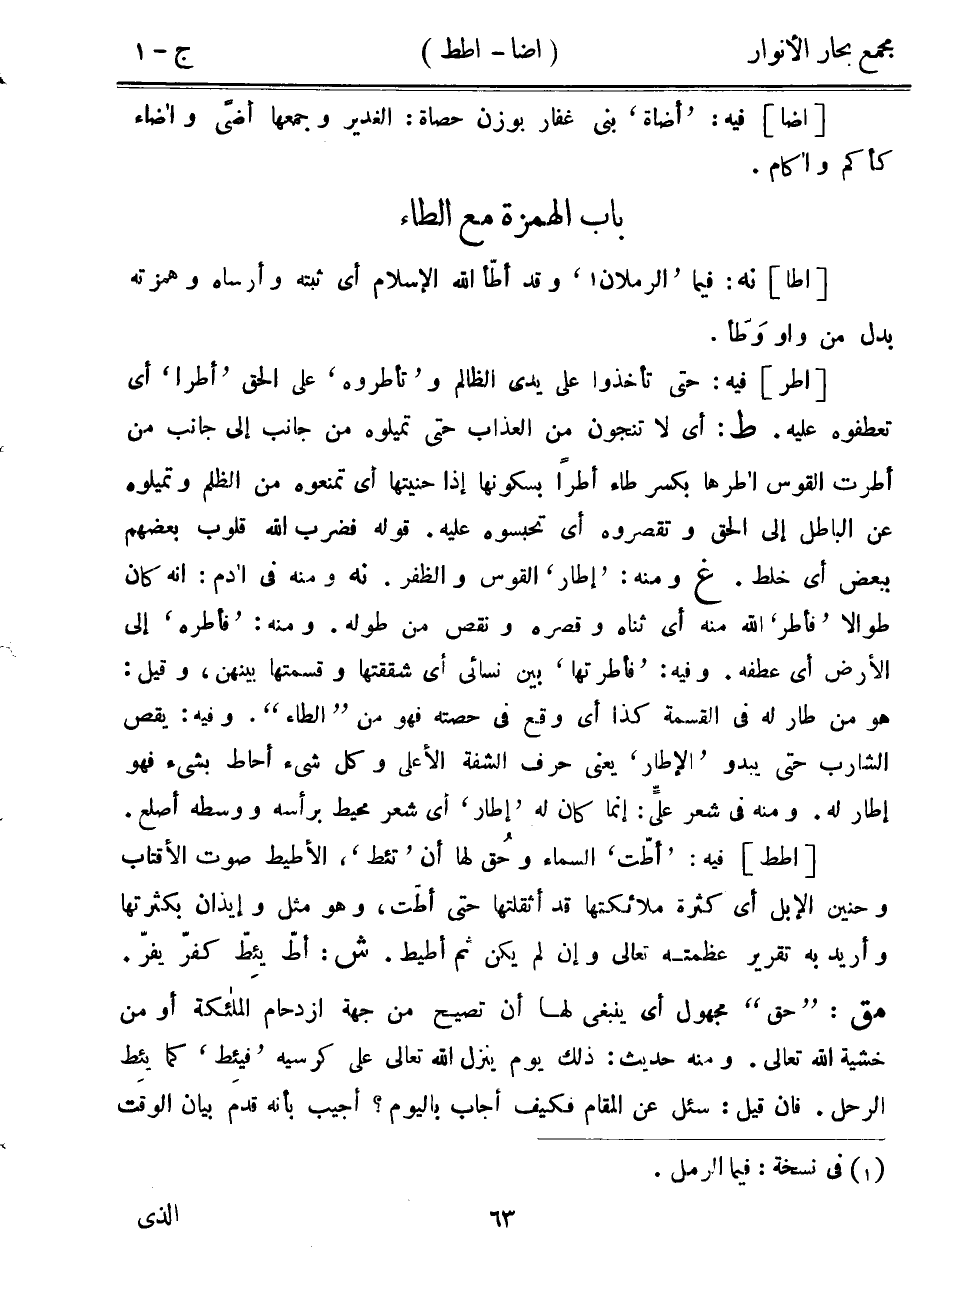 مجمع بحار الأنوار ( اضا - اطط ) ج - ١
[اضا] فيه: ’أضاة‘ بنى غفار بوزن حصاة: الغدير و جمعها أضىً و اٰضاء
كأكم و اٰكام .
باب الهمزة مع الطاء
[اطا] نه: فيما ’الرملان١‘ و قد أطّأ الله الإسلام أى ثبته و أرساه و همزته
بدل من واو وَطّأ .
[اطر] فيه: حتى تأخذوا على يدى الظالم و ’تأطروه‘ على الحق ’أطرا‘ أى
تعطفوه عليه. ط: أى لا تنجون من العذاب حتى تميلوه من جانب إلى جانب من
أطرت القوس اٰطرها بكسر طاء أطراً بسكونها إذا حنيتها أى تمنعوه من الظلم و تميلوه
عن الباطل إلى الحق و تقصروه أى تحبسوه عليه. قوله فضرب الله قلوب بعضهم
ببعض أى خلط. غ و منه: ’إطار‘ القوس و الظفر. نه و منه فى اٰدم: انه كان
طوالا ’فأطر‘ الله منه أى ثناه و قصره و نقص من طوله. و منه: ’فأطره‘ إلى
الأرض أى عطفه. و فيه: ’فأطرتها‘ بين نسائى أى شققتها و قسمتها بينهن، و قيل:
هو من طار له فى القسمة كذا أى وقع فى حصته فهو من ”الطاء“. و فيه: يقص
الشارب حتى يبدو ’الإطار‘ يعنى حرف الشفة الأعلى و كل شىء أحاط بشىء فهو
إطار له. و منه فى شعر علىّ: إنما كان له ’إطار‘ أى شعر محيط برأسه و وسطه أصلع.
[اطط] فيه: ’أطّت‘ السماء و حُق لها أن ’تئط‘، الأطيط صوت الأقتاب
و حنين الإبل أى كثرة ملائكتها قد أثقلتها حتى أطّت، و هو مثل و إيذان بكثرتها
و أريد به تقرير عظمته تعالى و إن لم يكن ثم أطيط. ش: أطّ يئِطّ كفرّ يفرّ.
مق: ”حق“ مجهول أى ينبغى لها أن تصيح من جهة ازدحام الملٰئكة أو من
خشية الله تعالى. و منه حديث: ذلك يوم ينزل الله تعالى على كرسيه ’فيئِط‘ كما يئِط
الرحل. فان قيل: سئل عن المقام فكيف أجاب باليوم؟ أجيب بأنه قدم بيان الوقت
(١) فى نسخة: فيما الرمل.
٦٣ الذى